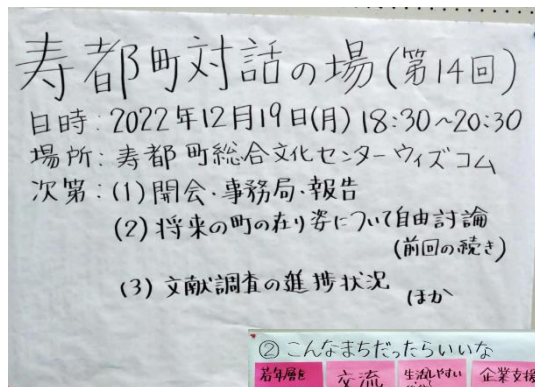 寿都町対話の場(第14回)
日時:2022年12月19日(月) 18:30~20:30
場所:寿都町総合文化センターウィズコム
次第:(1)開会・事務局・報告
(2)将来の町の在り姿について自由討論
(前回の続き)
(3)文献調査の進捗状況
(ほか
②こんなまちだったらいいな
若年層を
交流
生活しやすい
企業支援